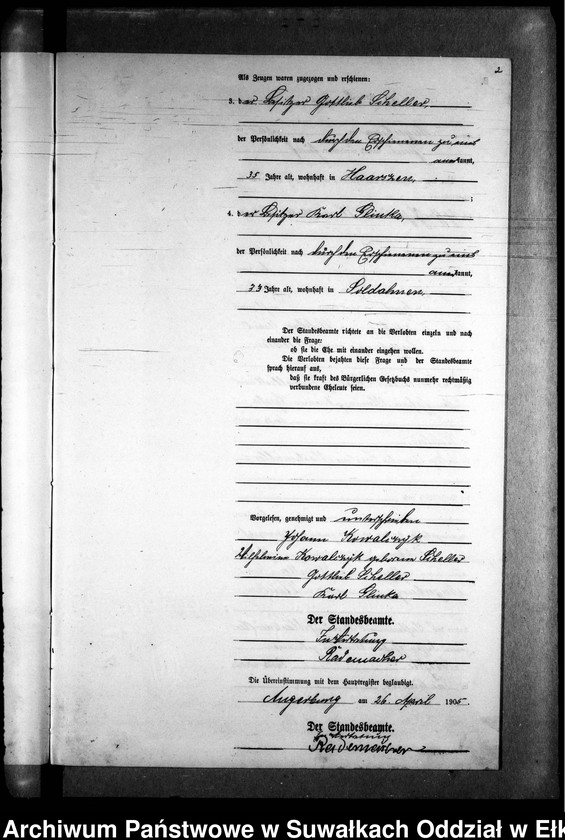 2
Als Zeugen waren zugezogen und erschienen:
3. der Besitzer Gottlieb Scheller,
der Persönlichkeit nach durch den zu eins
anerkannt,
35 Jahre alt, wohnhaft in Haarszen,
;
4. der Besitzer Karl Glinka,
der Persönlichkeit nach durch den zu eins
anerkannt,
Jahre alt, wohnhaft in Soldahnen,
Der Standesbeamte richtete an die Verlobten einzeln und nach
einander die Frage:
ob sie die Ehe mit einander eingehen wollen.
Die Verlobten bejahten diese Frage und der Standesbeamte
sprach hierauf aus,
daß sie kraft des Bürgerlichen Gesetzbuchs nunmehr rechtmäßig
verbundene Eheleute seien.
Vorgelesen, genehmigt und unterschrieben
Johann Kowalczyk
Wilhelmine Kowalczyk geborene Scheller
Gottlieb Scheller
Karl Glinka
Der Standesbeamte.
In Vertretung
Rademacher
Die Übereinstimmung mit dem Hauptregister beglaubigt.
Angerburg am 26. April 1905.
Der Standesbeamte.
In Vertretung
Rademacher
Archiwum Państwowe w Suwałkach Oddział w Ełk